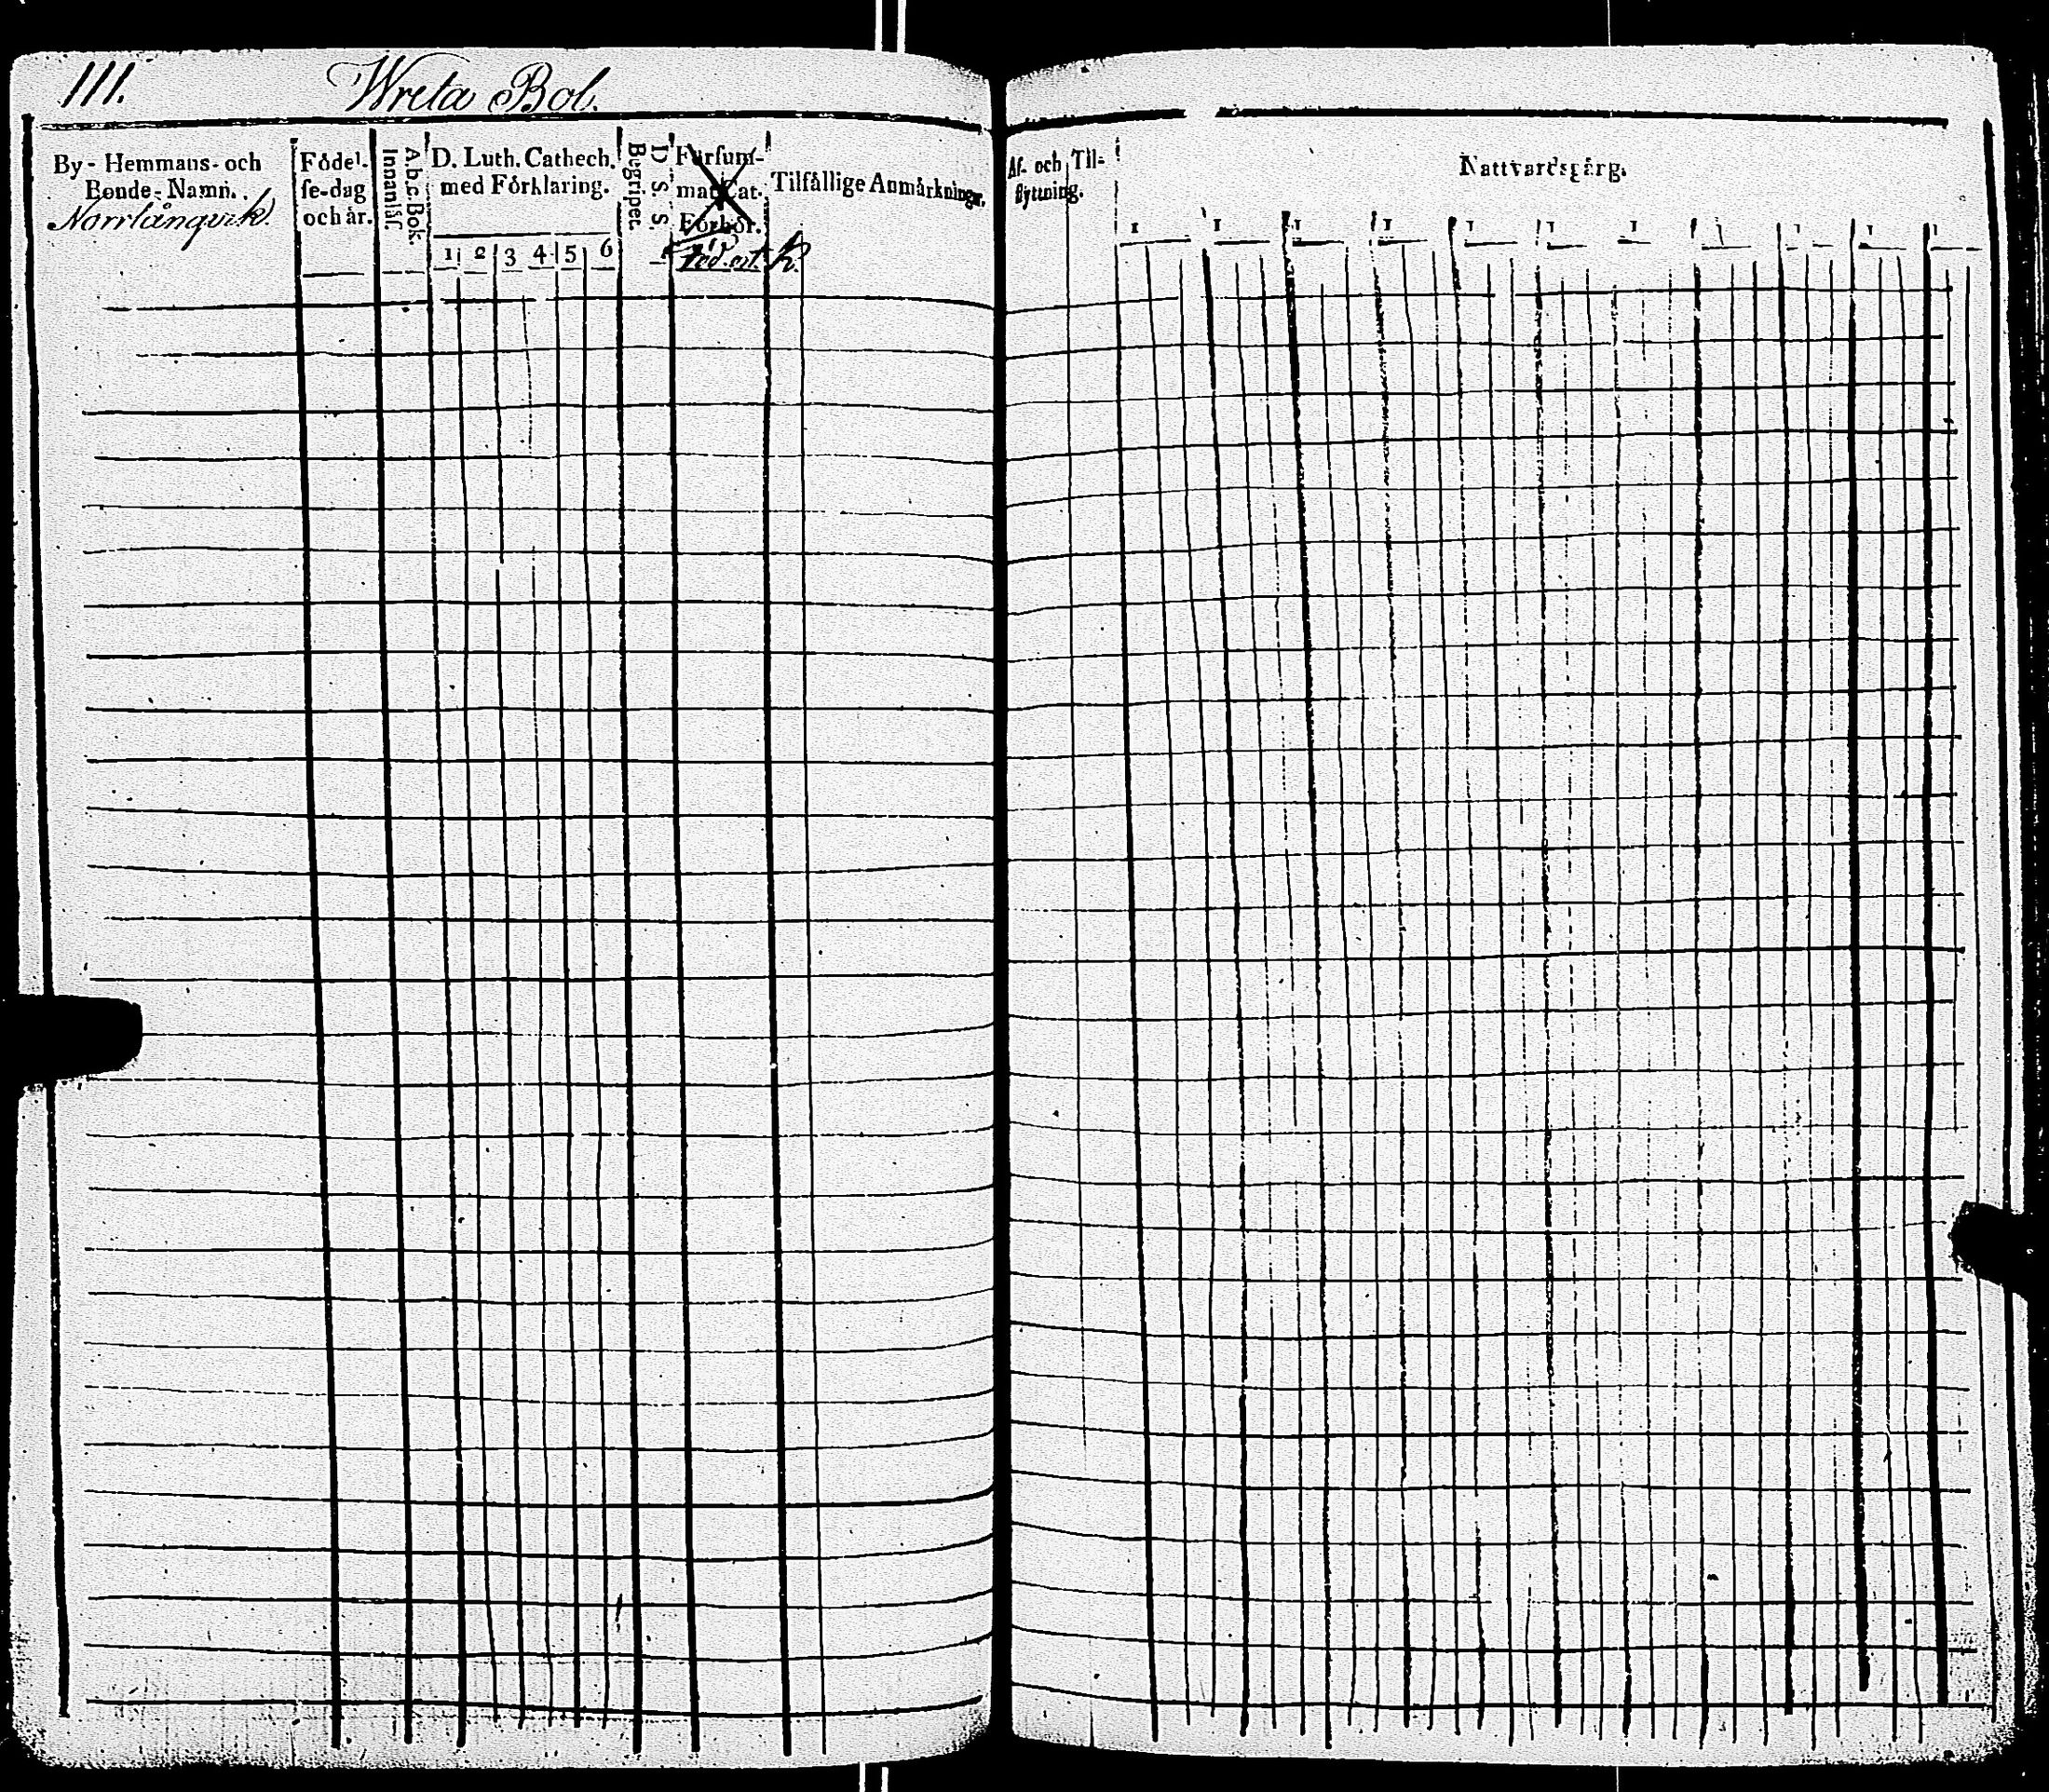 111.
Wreta Bol.
By- Hemmans- och
Bonde- Namn.
Norrlångvik.
Födel-
se-dag
och år.
A.b.c. Bok.
Innanläs.
D. Luth. Cathech.
med Förklaring.
1 2 3 4 5 6
D. S. S.
Begripet.
Försum-
mat Cat.
Förhör.
Tilfällige Anmärkningr.
Af- och Til-
flyttning.
Nattvardsgång.
1 1 1 1 1 1 1 1 1 1 1